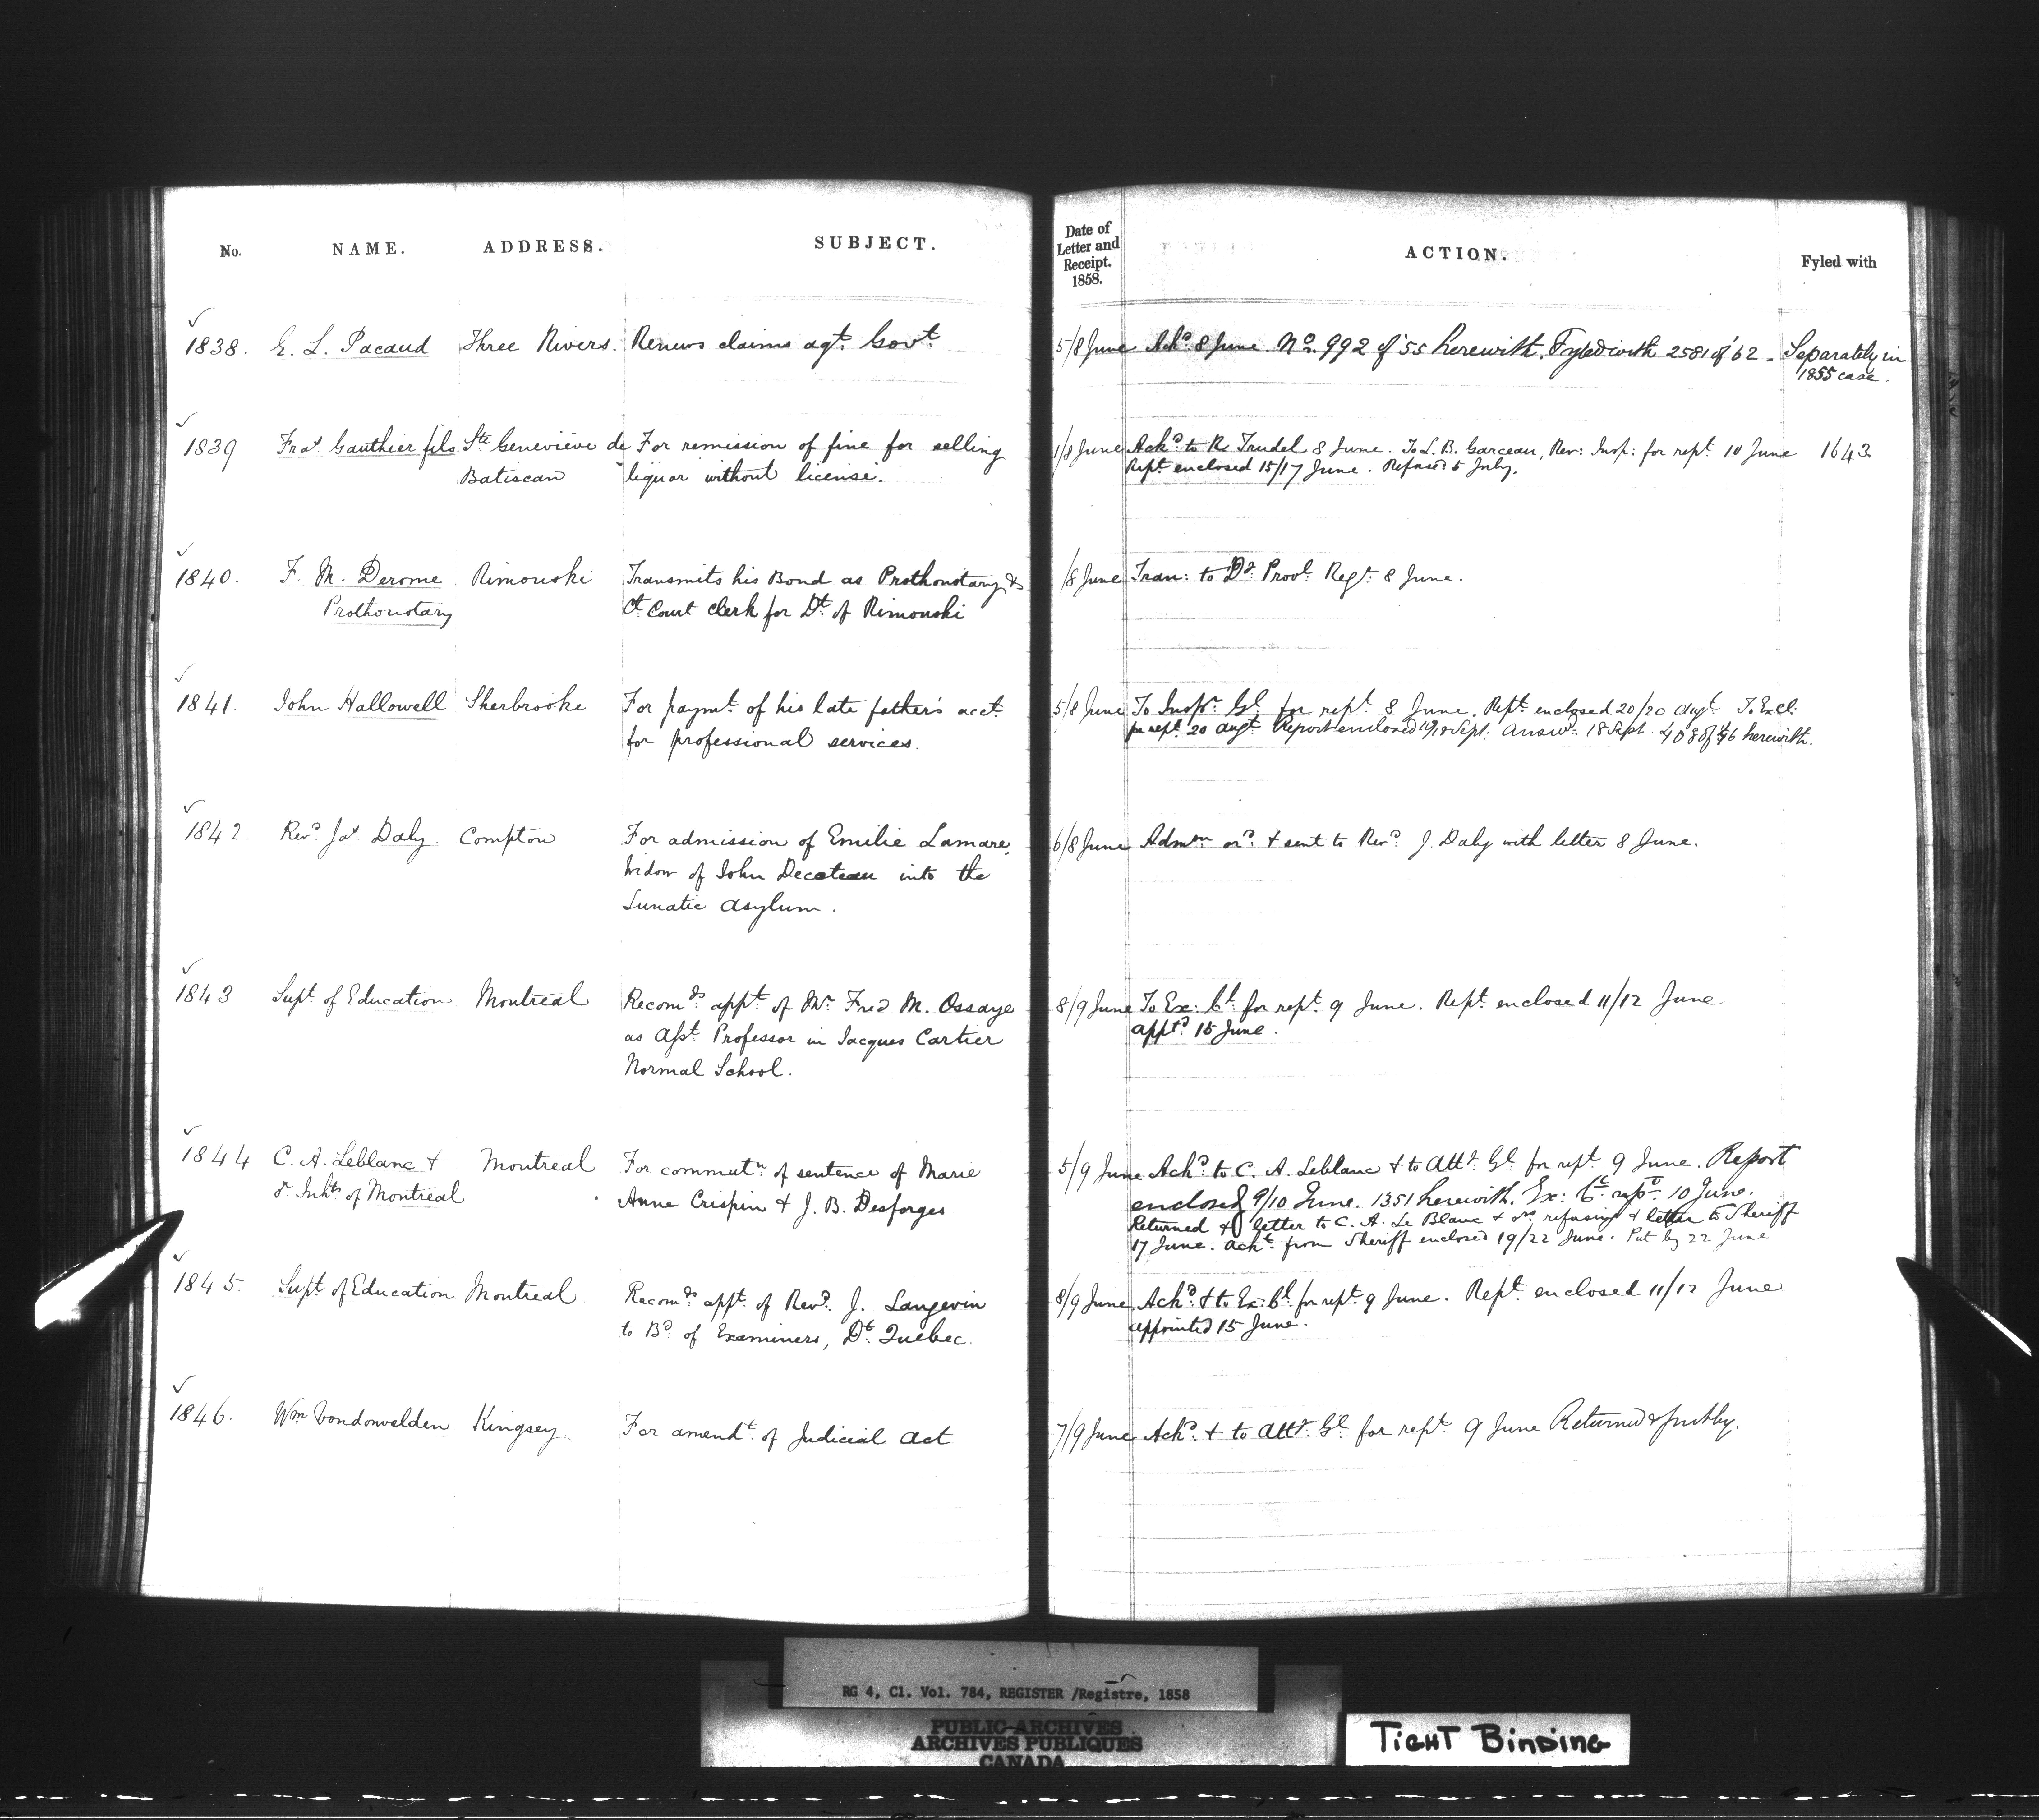 No. NAME. ADDRESS. SUBJECT.
Date of Letter and Receipt. 1858. ACTION. Fyled with
1838. E. L. Pacaud Three Rivers. Renews claims agt. Govt. 5/8 June Ackd. 8 June. No. 992 of 55 herewith. Fyled with 2581 of '62 - Separately in
1855 case.
1839 Fras. Gauthier fils Ste. Geneviève de For remission of fine for selling 1/8 June Ackd. to R. Trudel 8 June. To L. B. Garceau, Rev: Insp: for rept. 10 June 1643
Batiscan liquor without license. Rept. enclosed 15/17 June. Refused 5 July.
1840. F. M. Derome Rimouski Transmits his Bond as Prothonotary & /8 June Tran: to Dy. Provl. Regr. 8 June.
Prothonotary Ct. Court Clerk for Dt. of Rimouski
1841. John Hallowell Sherbrooke For paymt. of his late father's acct. 5/8 June To Inspr. Gl. for rept. 8 June. Rept. enclosed 20/20 Augt. To Excl.
for professional services. for rept. 20 Augt. Report enclosed 17/18 Sept. Answd. 18 Sept. 408 of 46 herewith.
1842 Revd. Jas. Daly Compton For admission of Emilie Lamare, 6/8 June Admn. ord. & sent to Revd. J. Daly with letter 8 June.
Widow of John Decoteau into the
Lunatic Asylum.
1843 Supt. of Education Montreal Recomds. appt. of Mr. Fred M. Ossaye 8/9 June To Ex: Cl. for rept. 9 June. Rept. enclosed 11/12 June
as Asst. Professor in Jacques Cartier apptd. 15 June.
Normal School.
1844 C. A. Leblanc & Montreal For commutn. of sentence of Marie 5/9 June Ackd. to C. A. Leblanc & to Atty. Gl. for rept. 9 June. Report
or. Inhts. of Montreal Anne Crispin & J. B. Desforges enclosed 9/10 June. 1351 herewith. Ex: C. rept. 10 June.
Returned & letter to C. A. Le Blanc & ors. refusing & letter to Sheriff
17 June. Ackt. from Sheriff enclosed 19/22 June. Put by 22 June
1845. Supt. of Education Montreal Recomds. appt. of Revd. J. Langevin 8/9 June Ackd. & to Ex: Cl. for rept. 9 June. Rept. enclosed 11/12 June
to Bd. of Examiners, Dt. Quebec. appointed 15 June.
1846. Wm. Vondonvelden Kingsey For amendt. of Judicial Act 7/9 June Ackd. & to Atty. Gl. for rept. 9 June Returned & put by.
RG 4, C1. Vol. 784, REGISTER /Registre, 1858
PUBLIC ARCHIVES
ARCHIVES PUBLIQUES
CANADA
TIGHT BINDING